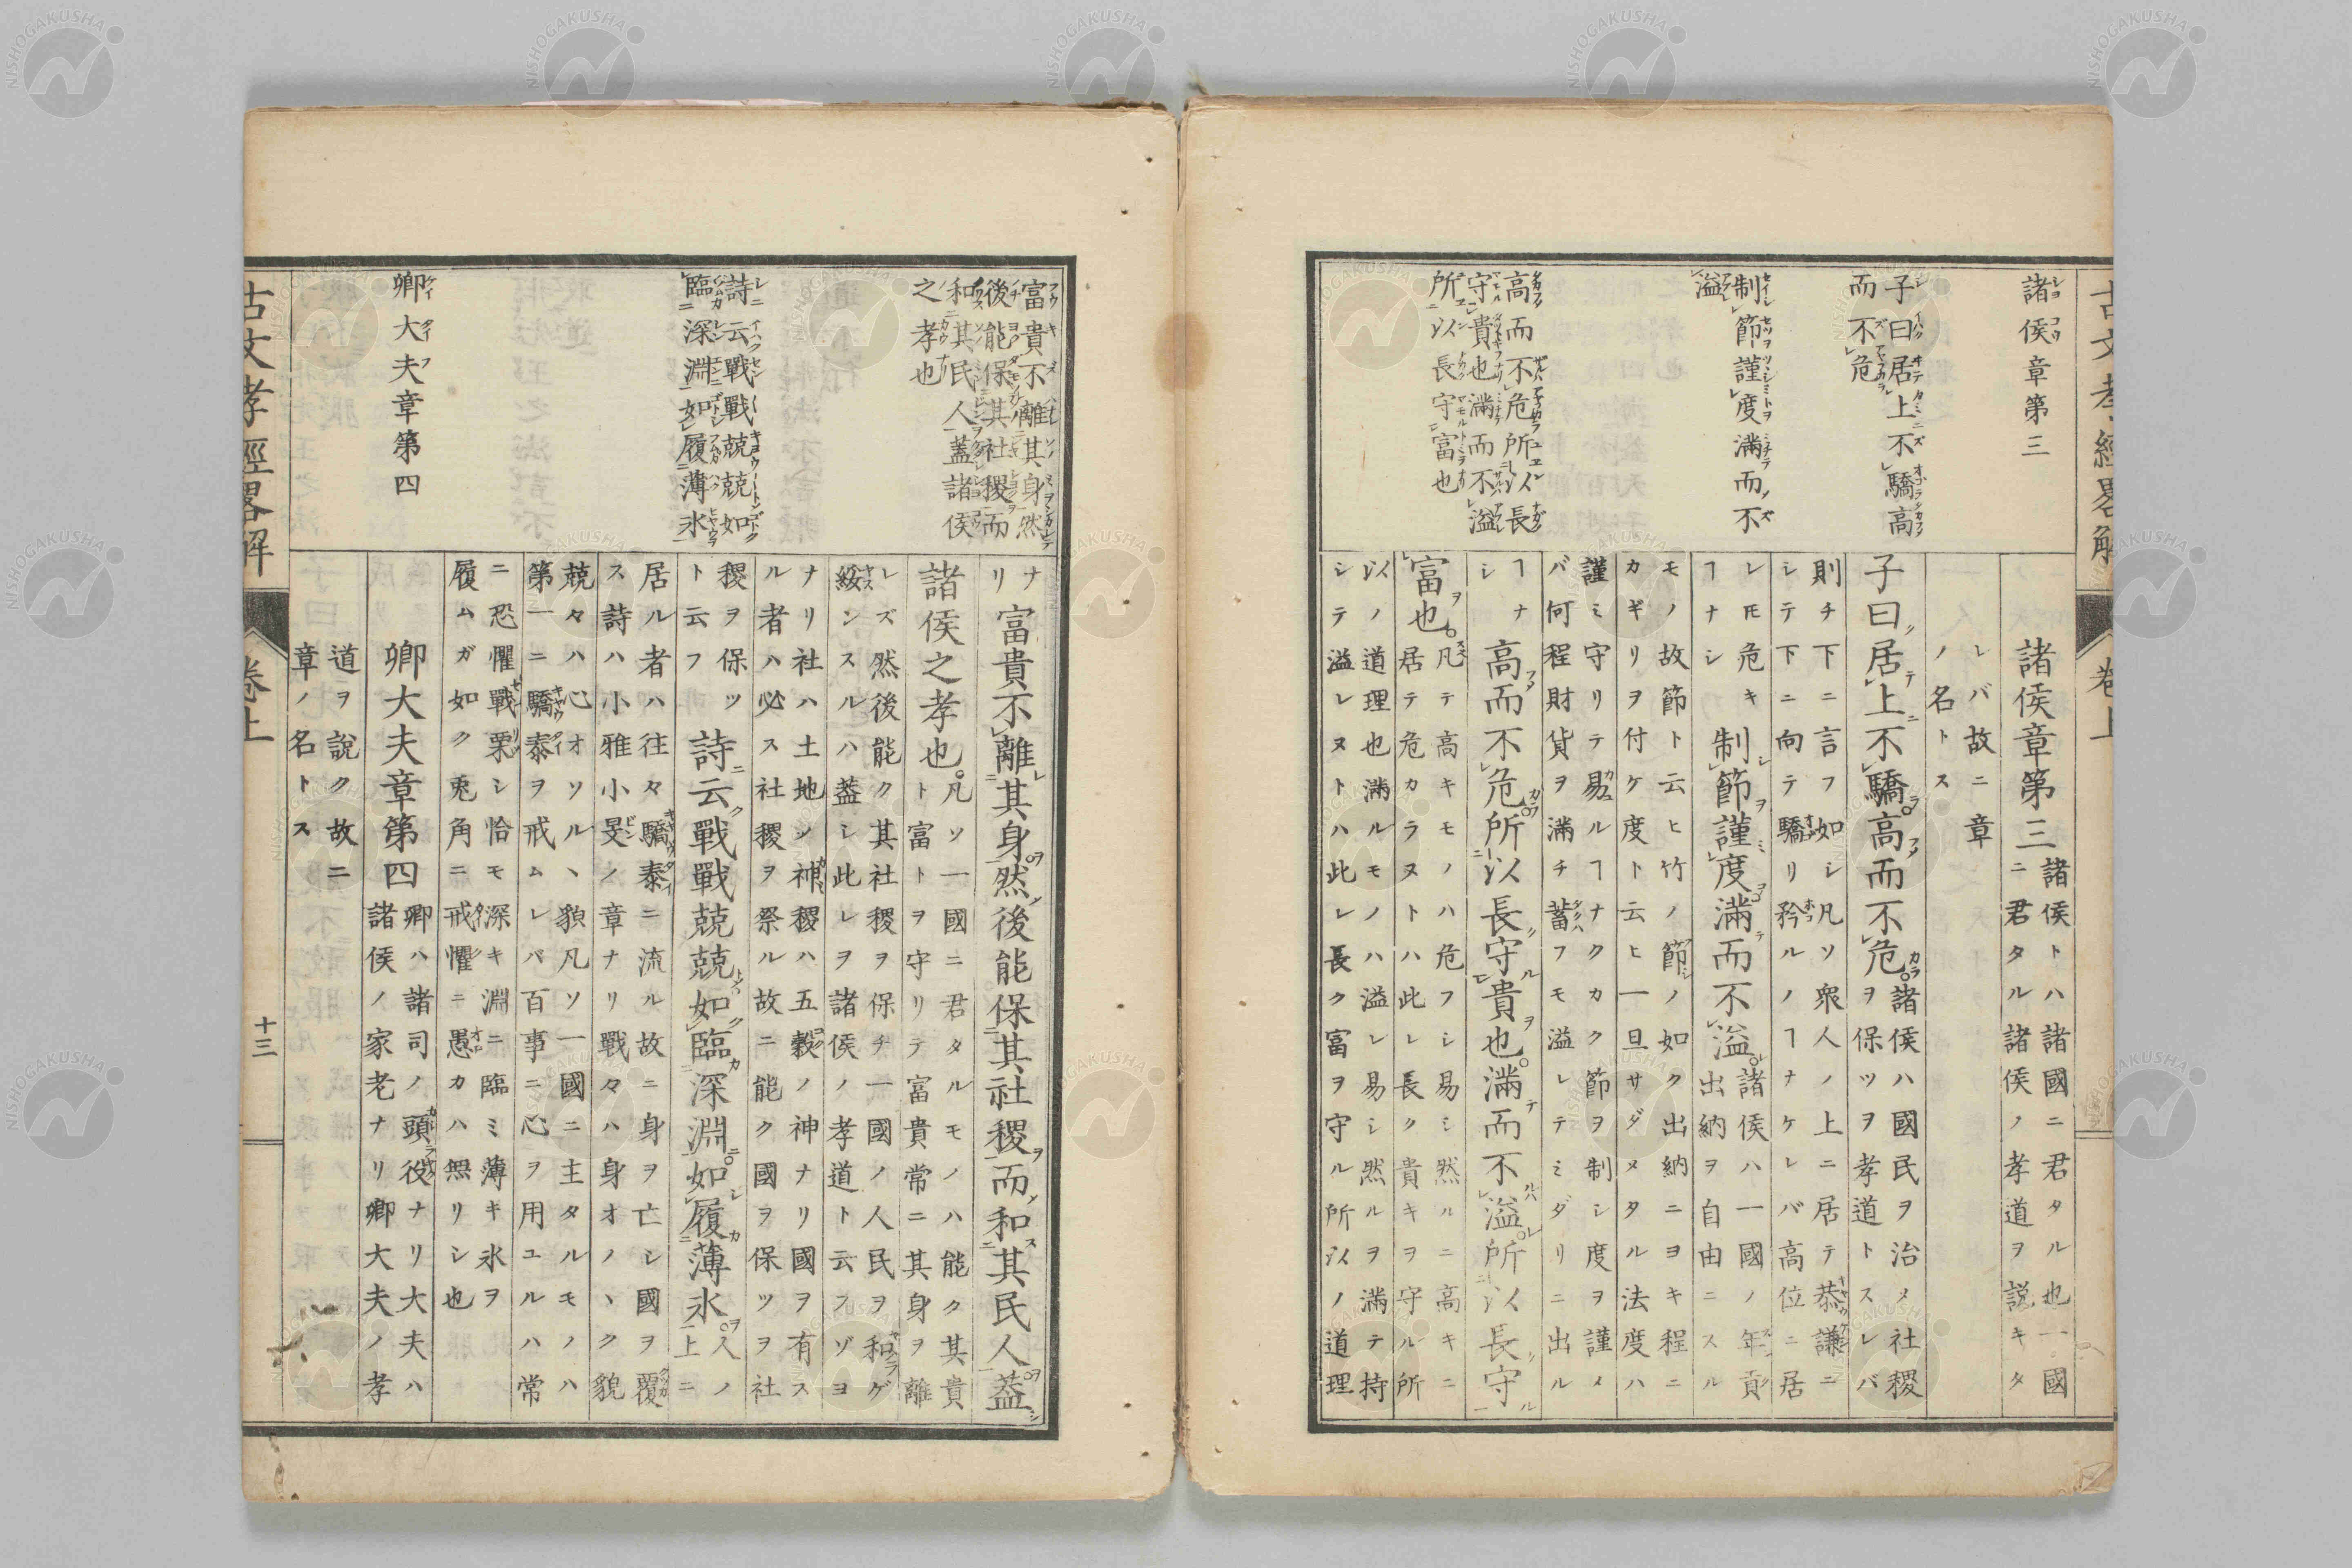 古文孝經畧解 卷上
諸侯章第三
子曰居上不驕高
而不危
制節謹度滿而不
溢
高而不危所以長
守貴也滿而不溢
所以長守富也
諸侯章第三
諸侯トハ諸國ニ君タル也一國
ニ君タル諸侯ノ孝道ヲ説キタ
レバ故ニ章
ノ名トス
子曰居上不驕高而不危
諸侯ハ國民ヲ治メ社稷
ヲ保ツヲ孝道トスレバ
則チ下ニ言フ如シ凡ソ衆人ノ上ニ居テ恭謙ニ
シテ下ニ向テ驕リ矜ルノヿナケレバ高位ニ居
レ𪜈危キ
ヿナシ
制節謹度滿而不溢
諸侯ハ一國ノ年貢
出納ヲ自由ニスル
モノ故節ト云ヒ竹ノ節ノ如ク出納ニヨキ程ニ
カギリヲ付ケ度ト云ヒ一旦サダメタル法度ハ
謹ミ守リテ易ルヿナクカク節ヲ制シ度ヲ謹メ
バ何程財貨ヲ滿チ蓄フモ溢レテミダリニ出ル
ヿナ
シ
高而不危所以長守貴也滿而不溢所以長守
富也
凡テ高キモノハ危フシ易シ然ルニ高キニ
居テ危カラヌトハ此レ長ク貴キヲ守ル所
以ノ道理也滿ルモノハ溢レ易シ然ルヲ滿テ持
シテ溢レヌトハ此レ長ク富ヲ守ル所以ノ道理
富貴不離其身然
後能保其社稷而
和其民人蓋諸侯
之孝也
詩云戰戰兢兢如
臨深淵如履薄氷
卿大夫章第四
ナ
リ
富貴不離其身然後能保其社稷而和其民人蓋
諸侯之孝也
凡ソ一國ニ君タルモノハ能ク其貴
ト富トヲ守リテ富貴常ニ其身ヲ離
レズ然後能ク其社稷ヲ保チ一國ノ人民ヲ和ゲ
綏ンスルハ蓋シ此レヲ諸侯ノ孝道ト云フゾヨ
ナリ社ハ土地ノ神稷ハ五穀ノ神ナリ國ヲ有ス
ル者ハ必ス社稷ヲ祭ル故ニ能ク國ヲ保ツヲ社
稷ヲ保ツ
ト云フ
詩云戰戰兢兢如臨深淵如履薄氷
人ノ
上ニ
居ル者ハ往々驕泰ニ流ル故ニ身ヲ亡シ國ヲ覆
ス詩ハ小雅小旻ノ章ナリ戰々ハ身オノヽク貌
兢々ハ心オソルヽ貌凡ソ一國ニ主タルモノハ
第一ニ驕泰ヲ戒ムレバ百事ニ心ヲ用ユルハ常
ニ恐懼戰栗シ恰モ深キ淵ニ臨ミ薄キ氷ヲ
履ムガ如ク兎角ニ戒懼ニ愚カハ無リシ也
卿大夫章第四
卿ハ諸司ノ頭役ナリ大夫ハ
諸侯ノ家老ナリ卿大夫ノ孝
道ヲ說ク故ニ
章ノ名トス
古文孝經畧解 卷上 十三
NISHOGAKUSHA